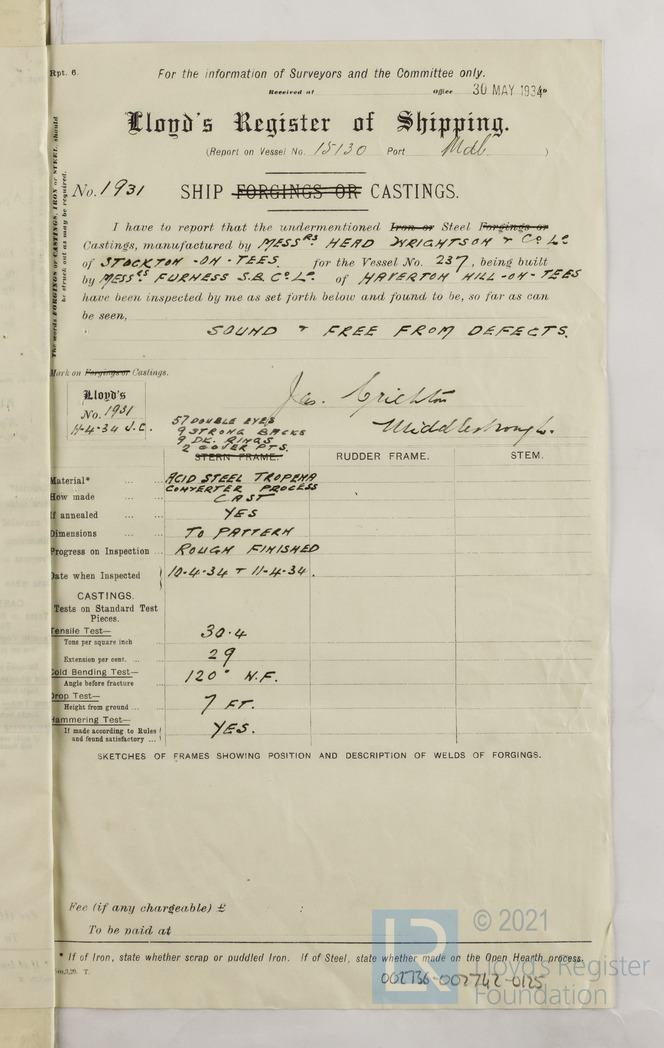 Rpt. 6.
For the information of Surveyors and the Committee only.
Received at Office 30 MAY 1934
Lloyd's Register of Shipping.
(Report on Vessel No. 15130 Port Mdb. )
No. 1931 SHIP FORGINGS OR CASTINGS.
The words FORGINGS or CASTINGS, IRON or STEEL, should
be struck out as may be required.
I have to report that the undermentioned Iron or Steel Forgings or
Castings, manufactured by MESSRS HEAD WRIGHTSON & Co Ld
of STOCKTON-ON-TEES for the Vessel No. 237, being built
by MESSRS FURNESS S.B. Co Ld. of HAVERTON HILL-ON-TEES
have been inspected by me as set forth below and found to be, so far as can
be seen,
SOUND & FREE FROM DEFECTS.
Mark on Forgings or Castings.
Lloyd's
No. 1931
11-4-34 J.C.
Jas. Crichton
Middlesbrough.
57 DOUBLE EYES
9 STRONG BACKS
9 DK. RINGS
2 COVER PTS.
STERN FRAME. RUDDER FRAME. STEM.
Material* ... ... ACID STEEL TROPENA
CONVERTER PROCESS
How made ... ... CAST
If annealed ... ... YES
Dimensions ... ... TO PATTERN
Progress on Inspection ... ROUGH FINISHED
Date when Inspected 10-4-34 & 11-4-34.
CASTINGS.
Tests on Standard Test
Pieces.
Tensile Test—
Tons per square inch 30.4
Extension per cent. ... ... 29
Cold Bending Test—
Angle before fracture 120° N.F.
Drop Test—
Height from ground ... ... 7 FT.
Hammering Test—
If made according to Rules
and found satisfactory ... YES.
SKETCHES OF FRAMES SHOWING POSITION AND DESCRIPTION OF WELDS OF FORGINGS.
Fee (if any chargeable) £ :
To be paid at
* If of Iron, state whether scrap or puddled Iron. If of Steel, state whether made on the Open Hearth process.
002736-002742-0125
LR
© 2021
Lloyd's Register
Foundation